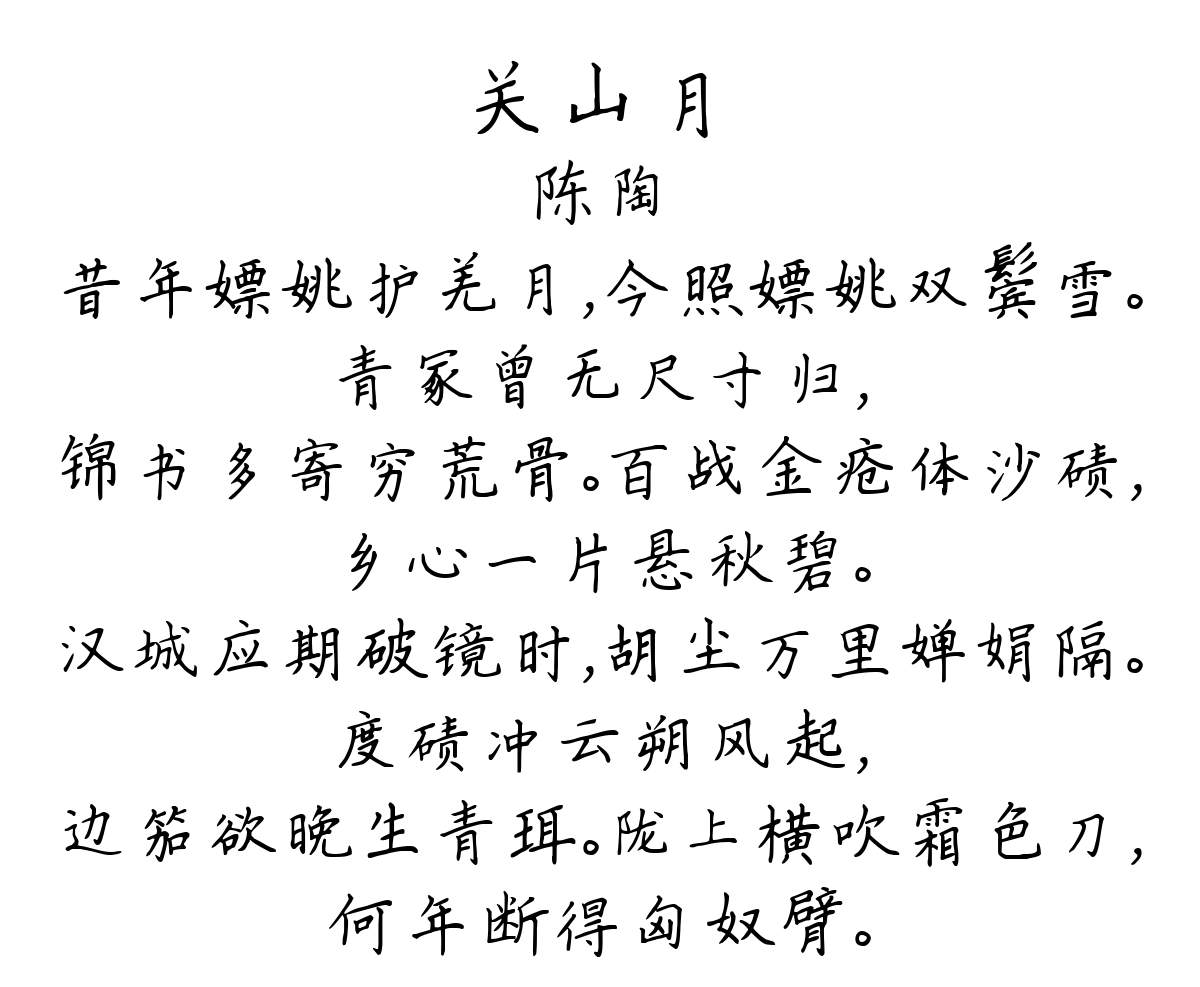 关山月
陈陶
昔年嫖姚护羌月,今照嫖姚双鬓雪。
青冢曾无尺寸归,
锦书多寄穷荒骨。百战金疮体沙碛,
乡心一片悬秋碧。
汉城应期破镜时,胡尘万里婵娟隔。
度碛冲云朔风起,
边笳欲晚生青珥。陇上横吹霜色刀,
何年断得匈奴臂。